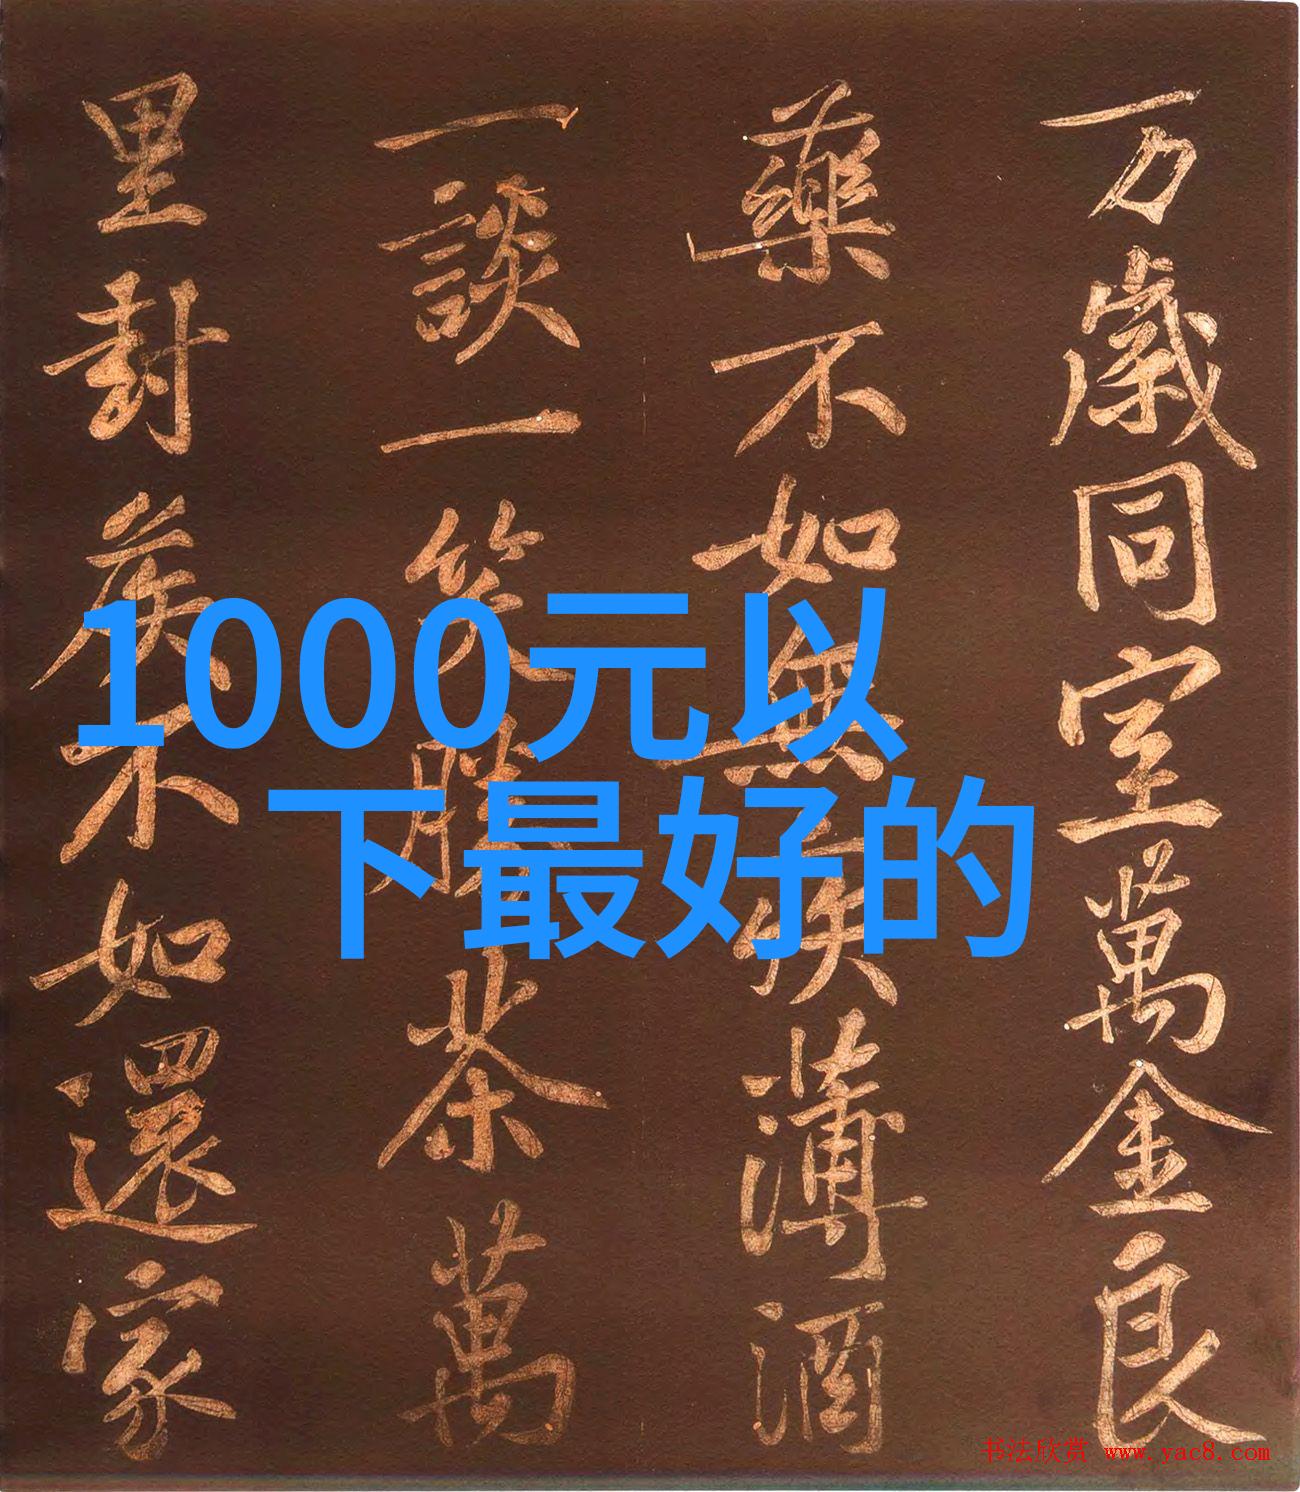 万歲同室萬金良
藥不如無疾薄酒
一談一笑勝茶萬
里封侯不如還家
1000元以
下最好的
书法欣赏 www.yac8.com